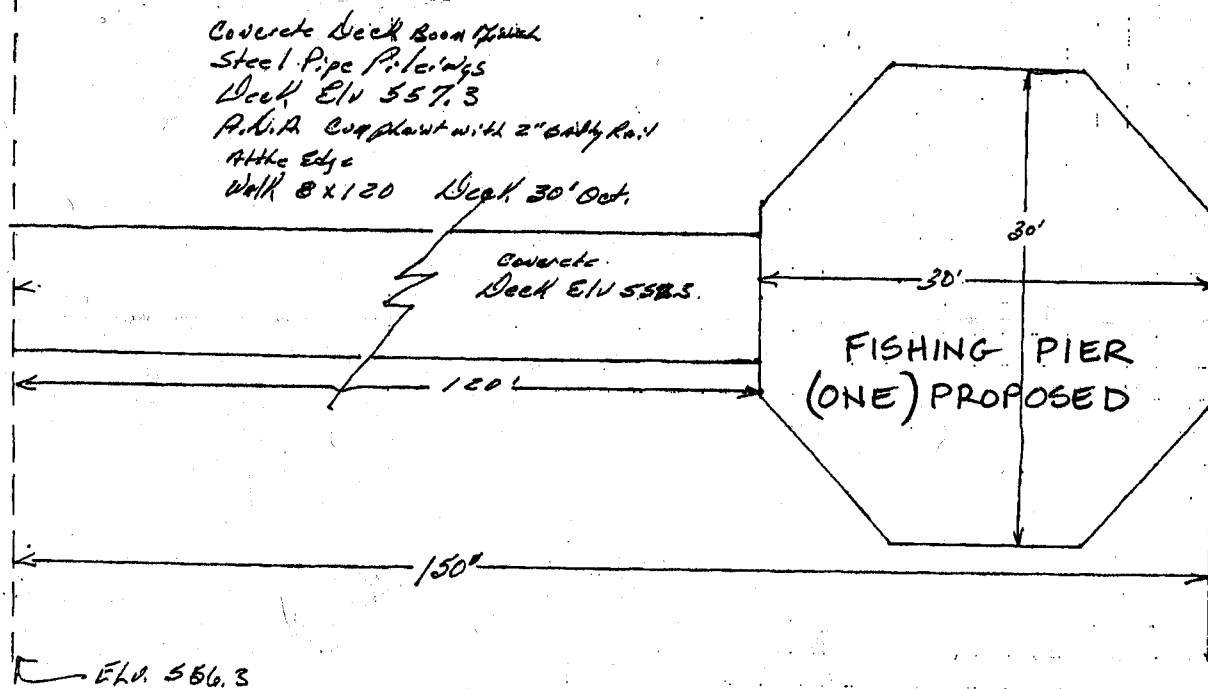 Concrete Deck Boom Finish
Steel Pipe Pileings
Deck Elv 557.3
A.D.A. Complaint with 2" Safty Rail
At the Edge
Walk 8 x 120 Deck 30' Oct.
Concrete
Deck Elv
30'
30'
FISHING PIER
(ONE) PROPOSED
120'
150'
ELV. 556.3